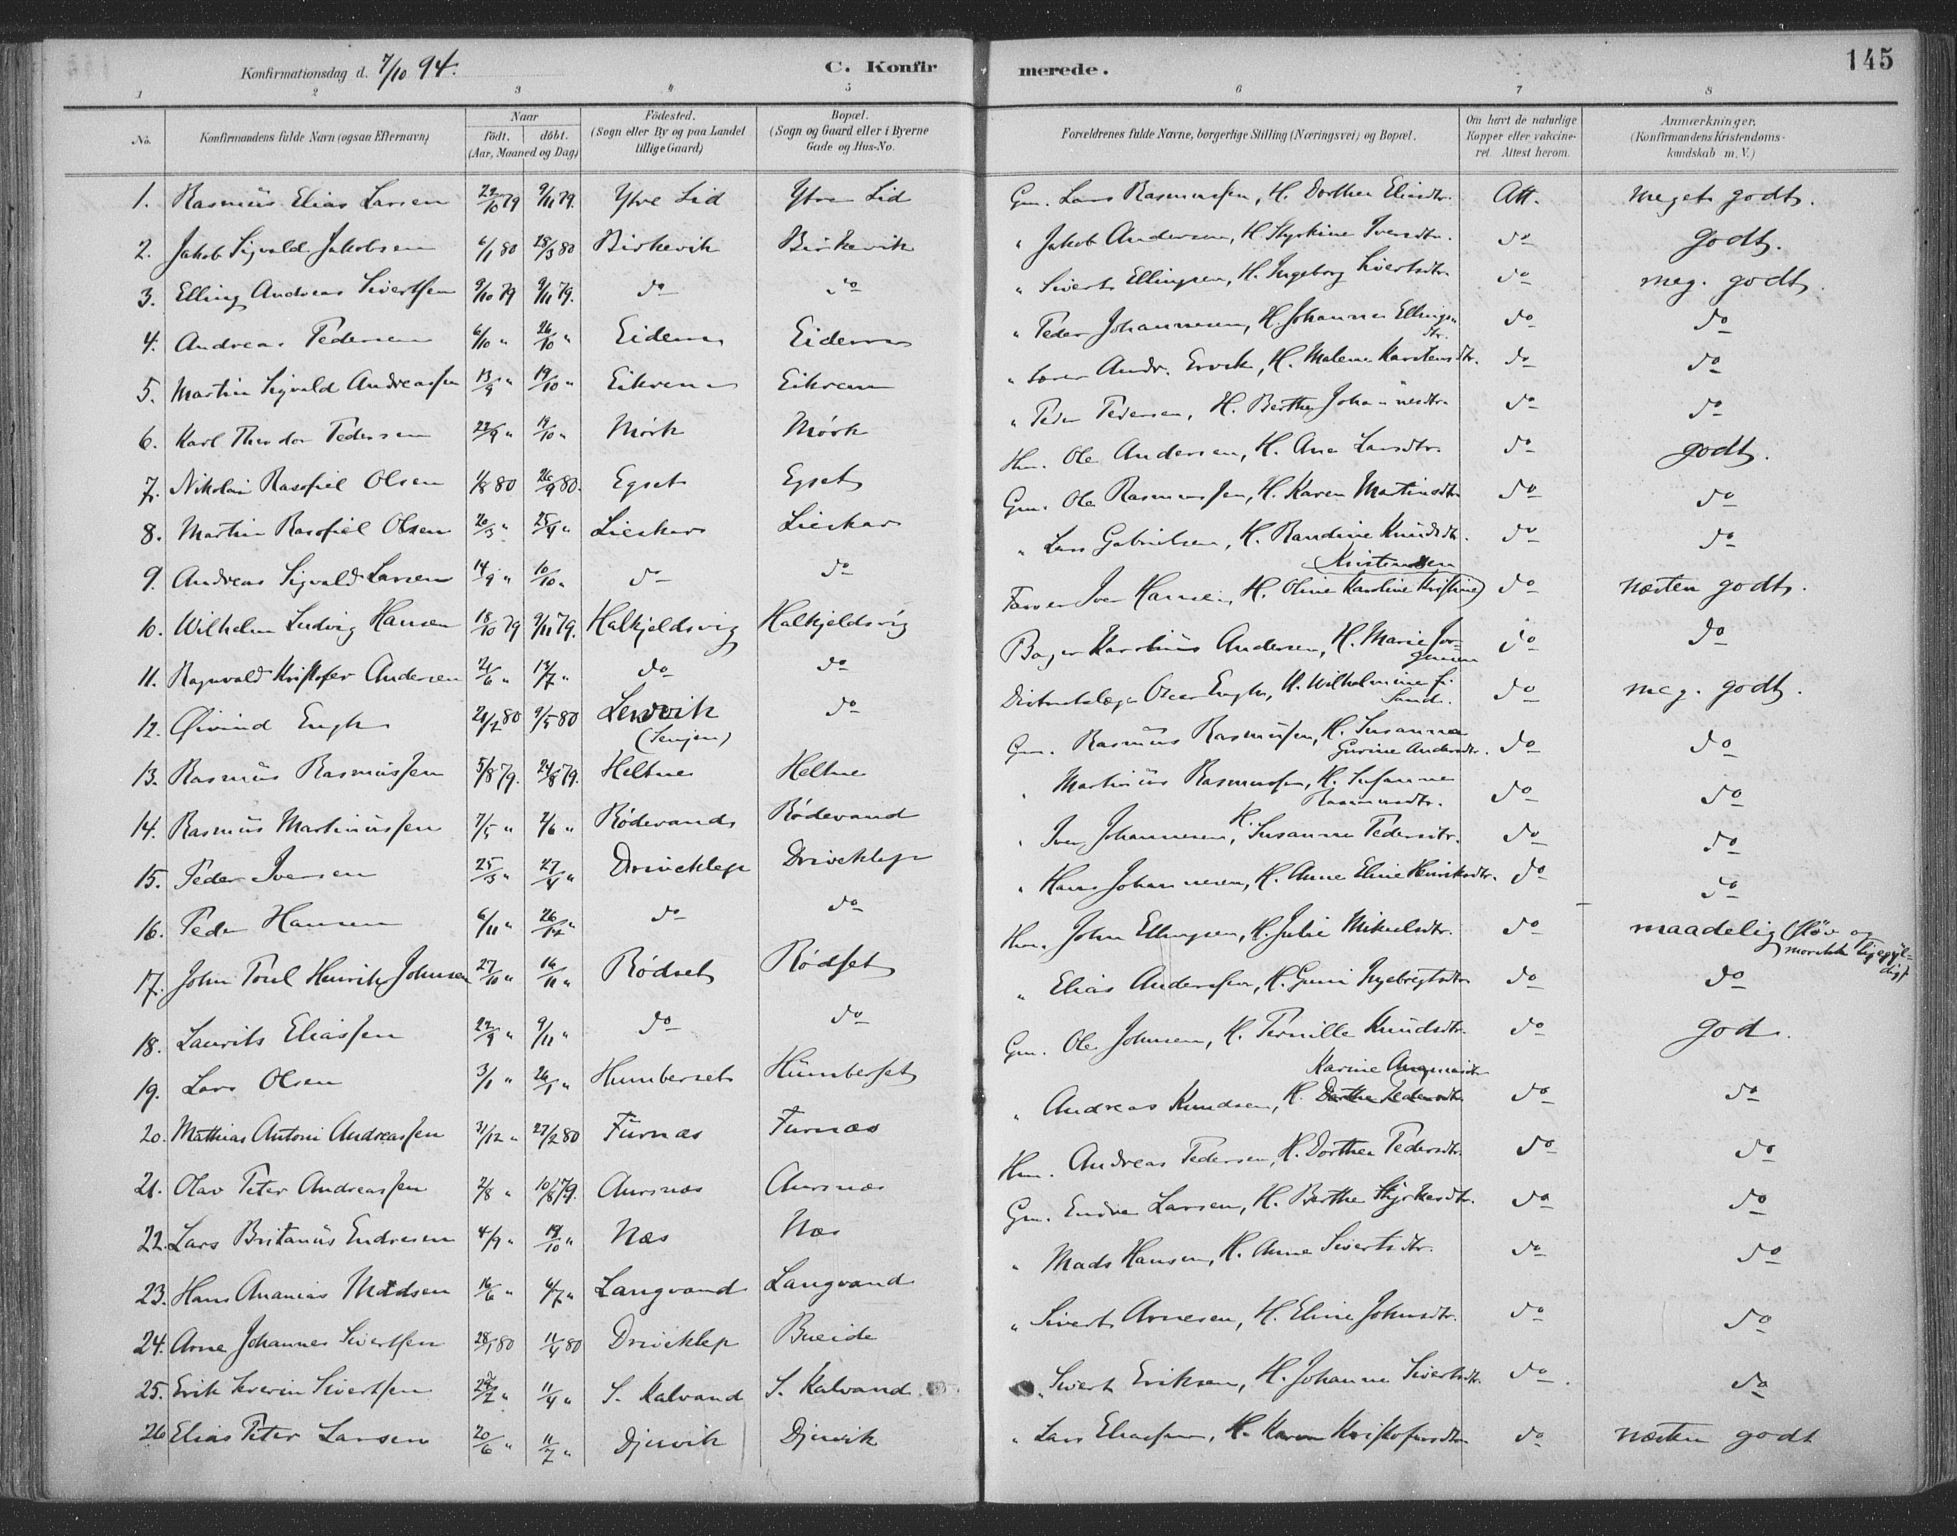 Konfirmationsdag d. 7/10 94. C. Konfirmerede. 145
1 2 3 4 5 6 7 8
No. Konfirmandens fulde Navn (ogsaa Efternavn) Naar født. døbt. (Aar, Maaned og Dag) Fødested. (Sogn eller By og paa Landet tillige Gaard) Bopæl. (Sogn og Gaard eller i Byerne Gade og Hus-No. Forældrenes fulde Navne, borgerlige Stilling (Næringsvei) og Bopæl. Om havt de naturlige Kopper eller vakcineret. Attest herom. Anmærkninger. (Konfirmandens Kristendomskundskab m. V.)
1. Rasmus Elias Larsen 22/10 79 9/11 79. Ytre Lid Ytre Lid Gm. Lars Rasmussen, H. Dorthea Eliasdtr. Att. meget godt.
2. Jakob Sigvald Jakobsen 6/1 80 28/3 80 Birkevik Birkevik " Jakob Andersen, H. Styrkine Iversdtr. do godt.
3. Elling Andreas Sivertsen 9/10 79 9/11 79. do do " Sivert Ellingsen, H. Ingeborg Sivertsdtr. do meg. godt.
4. Andreas Pedersen 6/10 " 26/10 " Eidem Eidem " Peder Johannesen, H. Johanna Ellingsdtr. do do
5. Martin Sigvald Andreassen 13/9 " 19/10 " Eikrem Eikrem " Andr. Ervik, H. Malene Karstensdtr. do do
6. Karl Theodor Pedersen 22/9 " 19/10 " Mørk Mørk " Peder Pedersen, H. Berthe Johannesdtr. do do
7. Nikolai Rasofiel Olsen 1/8 80 26/9 80. Egset Egset Hm. Ole Andersen, H. Ane Larsdtr. do godt.
8. Martin Rasofiel Olsen 20/3 " 25/4 " Lieskar Lieskar Gm. Ole Rasmussen, H. Karen Martinsdtr. do do
9. Andreas Sigvald Larsen 14/9 " 10/10 " do do " Lars Gabrielsen, H. Randine Knudsdtr. do do
10. Wilhelm Ludvig Hansen 18/10 79 9/11 79. Halkjeldsvig Halkjeldsvig Iver Hansen, H. Oline Karoline Kristine Kristiansen do næsten godt.
11. Ragnvald Kristofer Andersen 21/6 " 13/7 " do do Bager Karolius Andersen, H. Marie Jørgensen do do
12. Øivind Engh 21/2 80 9/5 80 Lenvik (Senjen) do Distriktslæge Oscar Engh, H. Wilhelmine f. Sand. do meg. godt.
13. Rasmus Rasmussen 5/8 79. 24/8 79. Heltne Heltne Gm. Rasmus Rasmussen, H. Susanna Gurine Andersdtr. do do
14. Rasmus Martinussen 7/5 " 2/6 " Rødevand Rødevand " Martinus Rasmussen, H. Susanne Rasmusdtr. do do
15. Peder Iversen 25/3 " 27/4 " Driveklep Driveklep " Iver Johannesen, H. Susanna Pedersdtr. do do
16. Peder Hansen 6/11 " 26/12 " do do " Hans Johannesen, H. Anne Eline Henriksdtr. do do
17. John Poul Henrik Johnsen 27/10 " 16/11 " Rødset Rødset Hm. John Ellingsen, H. Julie Mikkelsdtr. do maadelig (sløv og moralsk ligegyldig)
18. Laurits Eliassen 22/9 " 9/11 " do do " Elias Anderssen, H. Guri Ingebregtsdtr. do do
19. Lars Olsen 3/1 " 26/1 " Humberset Humberset Gm. Ole Johnsen, H. Pernille Knudsdtr. do god.
20. Mathias Antoni Andreassen 31/12 " 27/2 80 Furnæs Furnæs " Andreas Knudsen, H. Dorthe Pedersdtr. Karine do do
21. Olav Peter Andreassen 2/8 " 10/8 79. Aursnæs Aursnæs Hm. Andreas Pedersen, H. Dorthea Pedersdtr. do do
22. Lars Britanus Endresen 4/9 " 19/10 " Næs Næs Gm. Endre Larsen, H. Berthe Styrkersdtr. do do
23. Hans Ananias Madsen 16/6 " 6/7 " Langvand Langvand " Mads Hansen, H. Anne Sivertsdtr. do do
24. Arne Johannes Sivertsen 28/1 80 11/4 80 Driveklep Bueide " Sivert Arnesen, H. Eline Johnsdtr. do do
25. Erik Severin Sivertsen " 11/4 " S. Kalvand S. Kalvand " Sivert Eriksen, H. Johanne Sivertsdtr. do do
26 Elias Peter Larsen 20/6 " 11/7 " Djuvik Djuvik " Lars Eliassen, H. Karen Kristofersdtr. do næsten godt